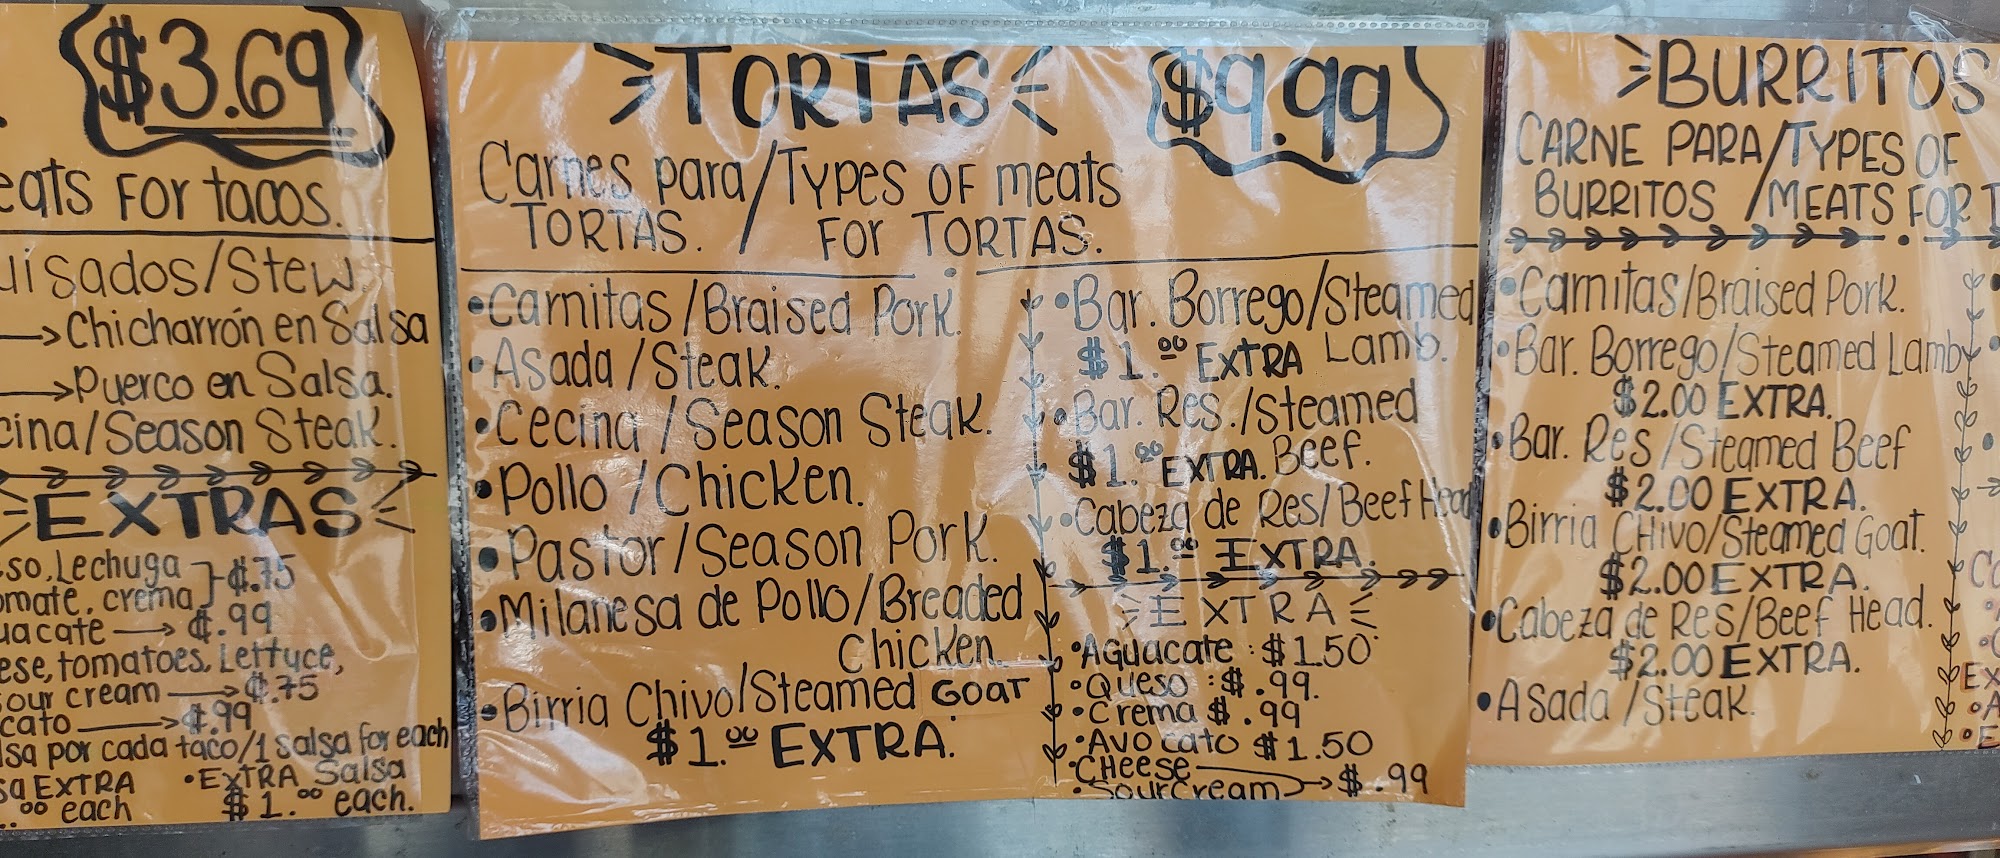 $3.69
eats For tacos.
uisados/Stew.
Chicharrón en Salsa
Puerco en Salsa.
cina/Season Steak.
EXTRAS
so, Lechuga $.75
omate, crema
uacate $.99
ese, tomatoes, Lettuce,
sour cream $.75
cato $.99
lsa por cada taco/1 salsa for each
sa EXTRA •EXTRA Salsa
.00 each $1.00 each.
TORTAS $9.99
Carnes para/Types of meats
TORTAS. / For TORTAS.
•Carnitas/Braised Pork.
•Asada/Steak.
•Cecina/Season Steak.
•Pollo/Chicken.
•Pastor/Season Pork.
•Milanesa de Pollo/Breaded
Chicken
•Birria Chivo/Steamed GOAT
$1.00 EXTRA.
•Bar. Borrego/Steamed
$1.00 EXTRA Lamb.
•Bar. Res./Steamed
$1.00 EXTRA. Beef.
•Cabeza de Res/Beef Head
$1.00 EXTRA.
EXTRA
•Aguacate: $1.50
•Queso: $.99.
•Crema $.99
•Avocato $1.50
•CHeese
•Sourcream $.99
BURRITOS
CARNE PARA/TYPES OF
BURRITOS /MEATS FOR T
•Carnitas/Braised Pork.
•Bar. Borrego/Steamed Lamb
$2.00 EXTRA.
•Bar. Res/Steamed Beef
$2.00 EXTRA.
•Birria CHivo/Steamed Goat.
$2.00 EXTRA.
•Cabeza de Res/Beef Head.
$2.00 EXTRA.
•Asada/Steak.